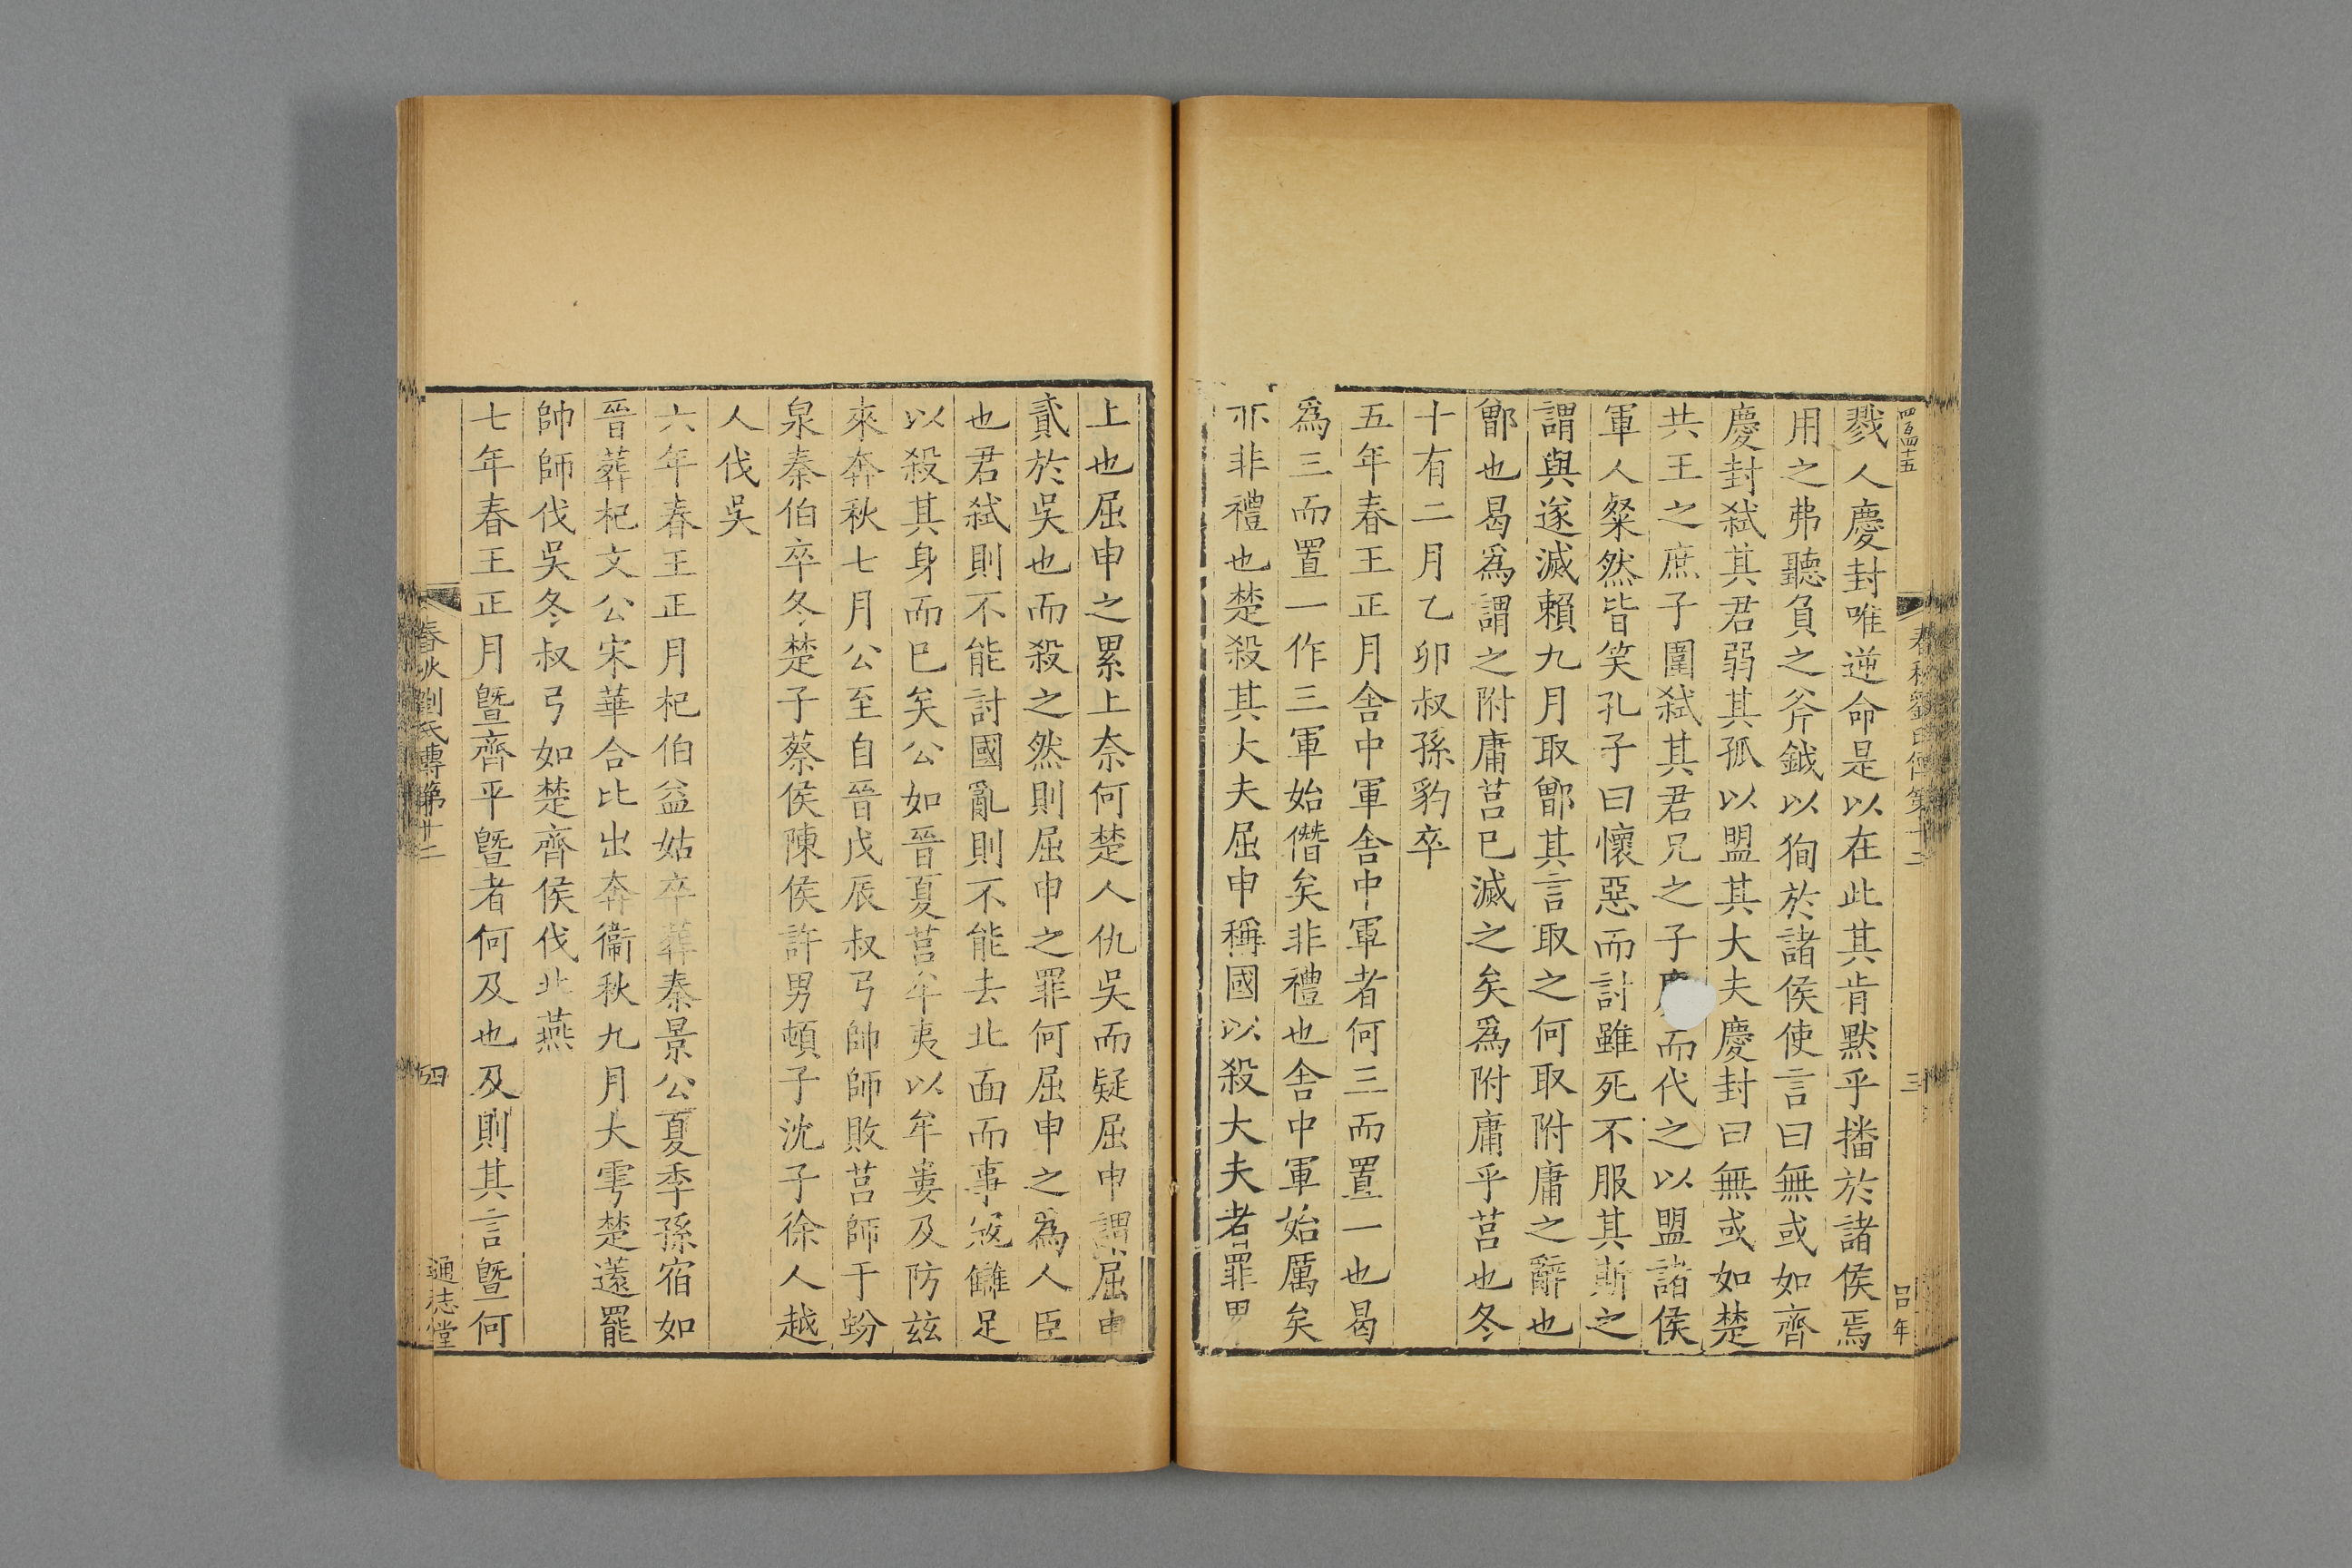 四百四十五
春秋劉氏傳第十二
三
呂年
戮人慶封唯逆命是以在此其肯默乎播於諸侯焉
用之弗聽負之斧鉞以狥於諸侯使言曰無或如齊
慶封弒其君弱其孤以盟其大夫慶封曰無或如楚
共王之庶子圍弒其君兄之子而代之以盟諸侯
軍人粲然皆笑孔子曰懷惡而討雖死不服其斯之
謂與遂滅賴九月取鄫其言取之何取附庸之辭也
鄫也曷爲謂之附庸莒已滅之矣爲附庸乎莒也冬
十有二月乙卯叔孫豹卒
五年春王正月舎中軍舎中軍者何三而置一也曷
爲三而置一作三軍始僭矣非禮也舎中軍始厲矣
亦非禮也楚殺其大夫屈申稱國以殺大夫者罪累
上也屈申之累上奈何楚人仇吳而疑屈申謂屈申
貳於吳也而殺之然則屈申之罪何屈申之爲人臣
也君弒則不能討國亂則不能去北面而事寇讎足
以殺其身而已矣公如晉夏莒牟夷以牟婁及防玆
來奔秋七月公至自晉戊辰叔弓帥師敗莒師于蚡
泉秦伯卒冬楚子蔡侯陳侯許男頓子沈子徐人越
人伐吳
六年春王正月杞伯益姑卒葬秦景公夏季孫宿如
晉葬杞文公宋華合比出奔衞秋九月大雩楚薳罷
帥師伐吳冬叔弓如楚齊侯伐北燕
七年春王正月曁齊平曁者何及也及則其言曁何
春秋劉氏傳第十二
四
通志堂